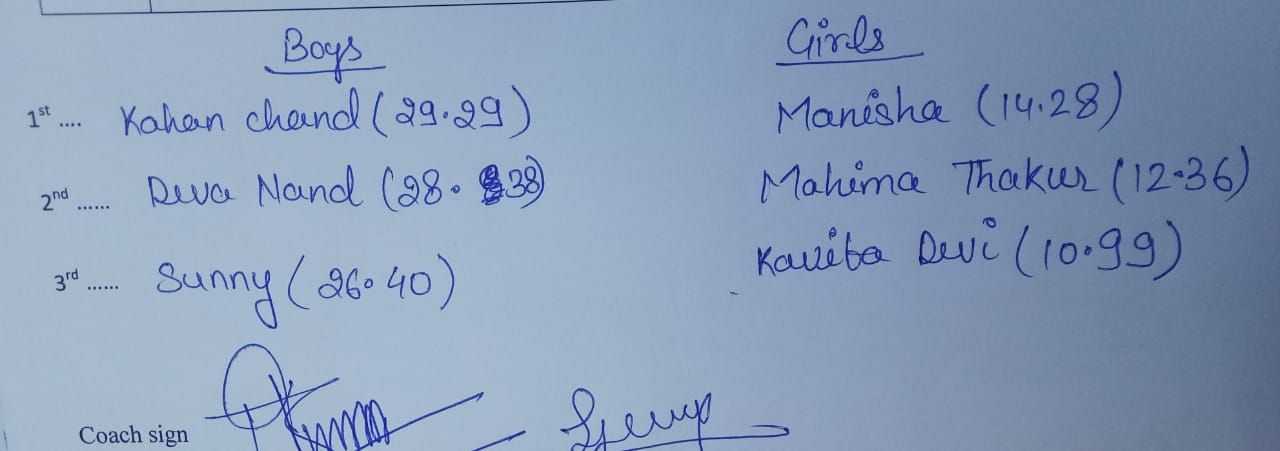 Boys Girls
1st .... Kahan chand (29.29) Manisha (14.28)
2nd ...... Deva Nand (28.38) Mahima Thakur (12.36)
3rd ...... Sunny (26.40) Kavita Devi (10.99)
Coach sign